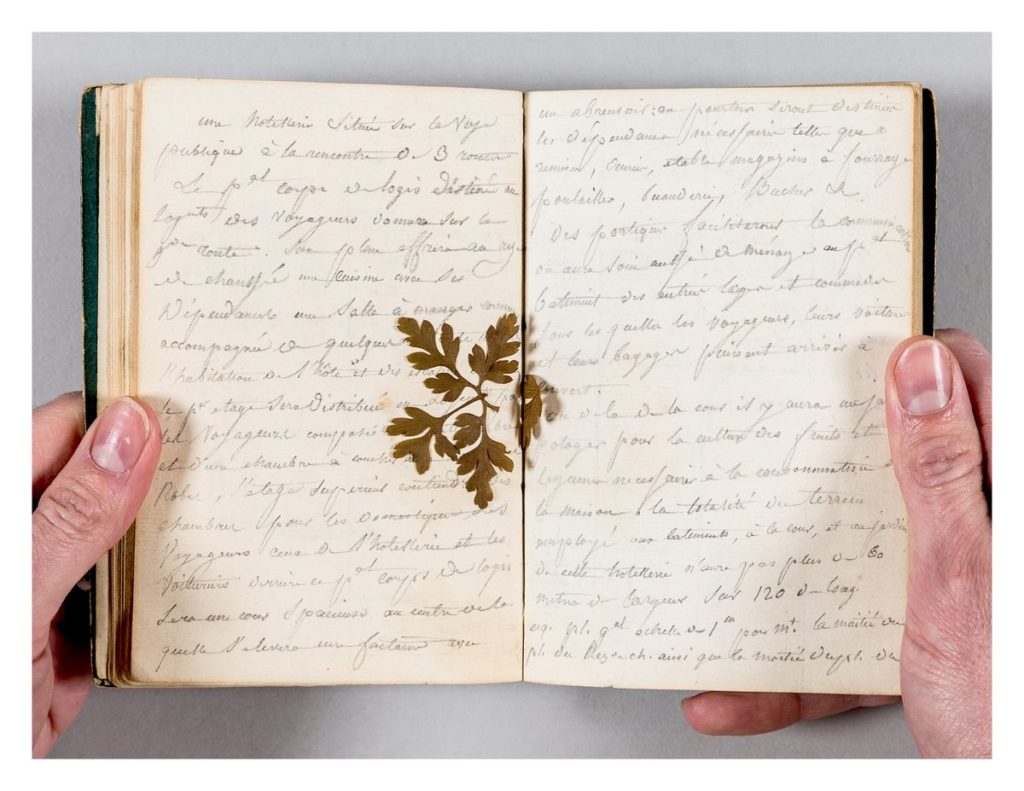 une hotellerie située sur la voye
publique à la rencontre de 3 routes
Le pal corps de logis destiné au
logemt des voyageurs donnera sur la
gde route. Son plan offrira au rez
de chaussée une cuisine avec ses
dépendances une Salle à manger
accompagnée de quelques
l'habitation de l'hôte et des
le per etage Sera distribué en
des Voyageurs composés
et d'une chambre à coucher
l'étage Superieur contiendra des
chambres pour les domestiques des
Voyageurs ceux de l'hotellerie et les
Voituriers derrière ce pal corps de logis
Sera une cour Spacieuse au centre de la
quelle S'elevera une fontaine avec
un abreuvoir: au pourtour seront distribués
les dépendances nécessaires telles que
remises, écurie, etable magazins à fourrage
poulailler, buanderie, Bucher &
des portiques faciliteront la communication
on aura soin de ménager au pal
batiment des entrées larges et commodes
par les quelles les voyageurs, leurs voitures
et leurs bagages puissent arriver à
couvert.
au de la de la cour il y aura un
potager pour la culture des fruits et
legumes nécessaires à la consommation de
la maison. la totalité du terrein
employé aux batiments, à la cour, et au jardin
de cette hotellerie n'aura pas plus de 60
metres de largeur sur 120 de long.
echelle de 1 m pour mt. la moitié du
pl. du Rez de ch. ainsi que la moitié du pl. du